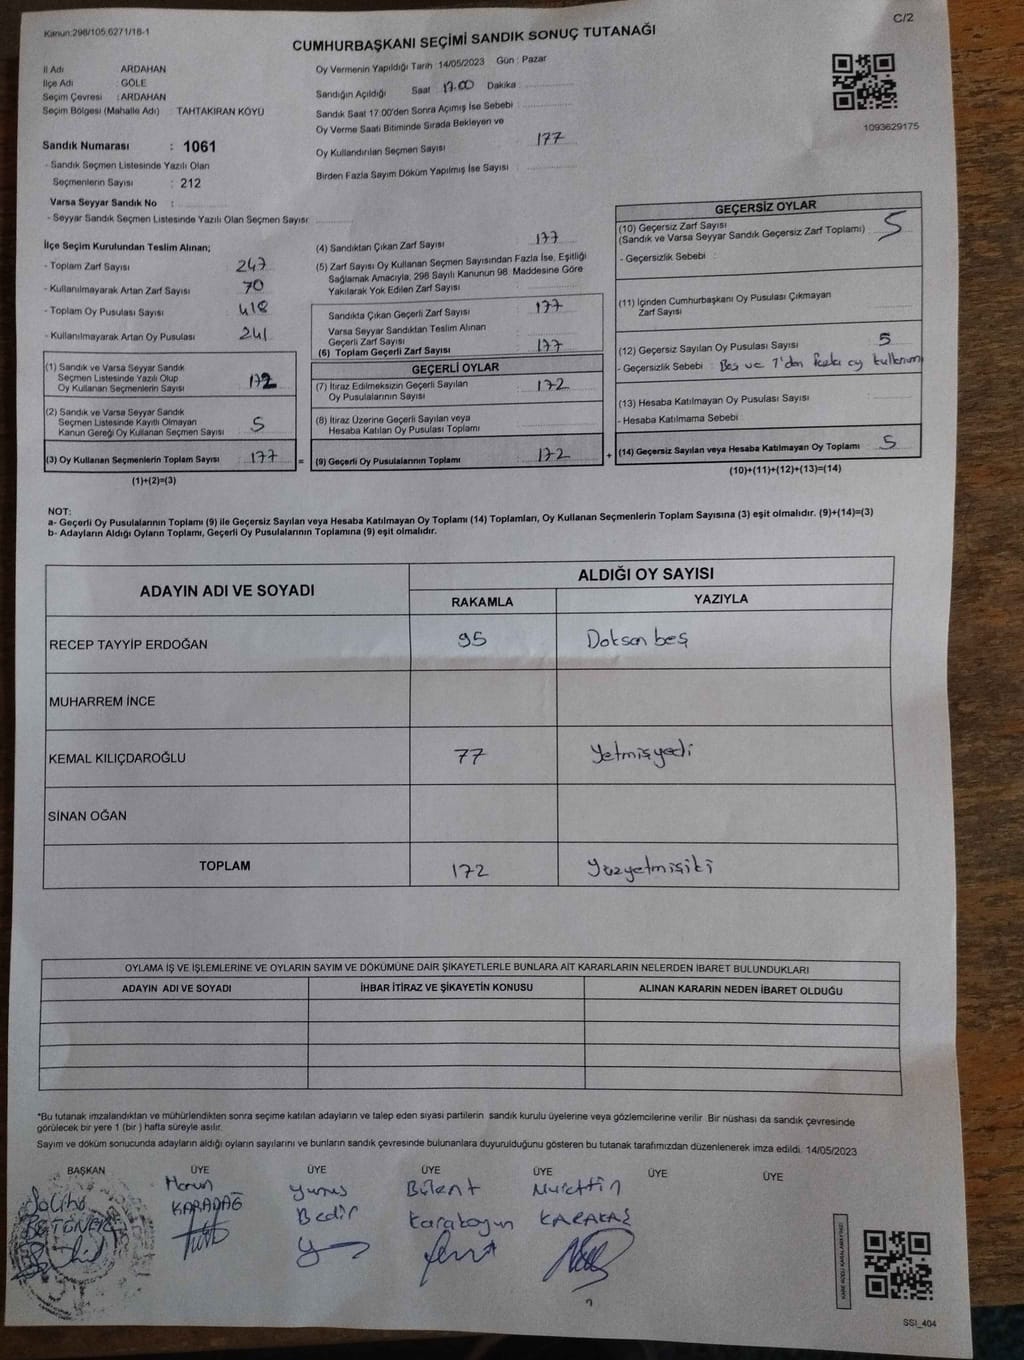 Kanun:298/105,6271/18-1
C/2
CUMHURBAŞKANI SEÇİMİ SANDIK SONUÇ TUTANAĞI
İl Adı ARDAHAN
İlçe Adı : GÖLE
Seçim Çevresi : ARDAHAN
Seçim Bölgesi (Mahalle Adı) TAHTAKIRAN KÖYÜ
Sandık Numarası : 1061
- Sandık Seçmen Listesinde Yazılı Olan
Seçmenlerin Sayısı : 212
Varsa Seyyar Sandık No :
- Seyyar Sandık Seçmen Listesinde Yazılı Olan Seçmen Sayısı
Oy Vermenin Yapıldığı Tarih : 14/05/2023 Gün : Pazar
Sandığın Açıldığı Saat 17.00 Dakika :
Sandık Saat 17.00'den Sonra Açımış İse Sebebi :
Oy Verme Saati Bitiminde Sırada Bekleyen ve
Oy Kullandırılan Seçmen Sayısı : 177
Birden Fazla Sayım Döküm Yapılmış İse Sayısı :
1093629175
İlçe Seçim Kurulundan Teslim Alınan;
- Toplam Zarf Sayısı 247
- Kullanılmayarak Artan Zarf Sayısı 70
- Toplam Oy Pusulası Sayısı 418
- Kullanılmayarak Artan Oy Pusulası 241
(1) Sandık ve Varsa Seyyar Sandık
Seçmen Listesinde Yazılı Olup
Oy Kullanan Seçmenlerin Sayısı 172
(2) Sandık ve Varsa Seyyar Sandık
Seçmen Listesinde Kayıtlı Olmayan
Kanun Gereği Oy Kullanan Seçmen Sayısı 5
(3) Oy Kullanan Seçmenlerin Toplam Sayısı : 177
(1)+(2)=(3)
(4) Sandıktan Çıkan Zarf Sayısı 177
(5) Zarf Sayısı Oy Kullanan Seçmen Sayısından Fazla İse, Eşitliği
Sağlamak Amacıyla, 298 Sayılı Kanunun 98. Maddesine Göre
Yakılarak Yok Edilen Zarf Sayısı
Sandıkta Çıkan Geçerli Zarf Sayısı 177
Varsa Seyyar Sandıktan Teslim Alınan
Geçerli Zarf Sayısı
(6) Toplam Geçerli Zarf Sayısı 177
GEÇERLİ OYLAR
(7) İtiraz Edilmeksizin Geçerli Sayılan
Oy Pusulalarının Sayısı 172
(8) İtiraz Üzerine Geçerli Sayılan veya
Hesaba Katılan Oy Pusulası Toplamı
= (9) Geçerli Oy Pusulalarının Toplamı 172
GEÇERSİZ OYLAR
(10) Geçersiz Zarf Sayısı
(Sandık ve Varsa Seyyar Sandık Geçersiz Zarf Toplamı) 5
- Geçersizlik Sebebi :
(11) İçinden Cumhurbaşkanı Oy Pusulası Çıkmayan
Zarf Sayısı
(12) Geçersiz Sayılan Oy Pusulası Sayısı 5
- Geçersizlik Sebebi : Boş ve 1'den fazla oy kullanım
(13) Hesaba Katılmayan Oy Pusulası Sayısı
- Hesaba Katılmama Sebebi
+ (14) Geçersiz Sayılan veya Hesaba Katılmayan Oy Toplamı 5
(10)+(11)+(12)+(13)=(14)
NOT:
a- Geçerli Oy Pusulalarının Toplamı (9) ile Geçersiz Sayılan veya Hesaba Katılmayan Oy Toplamı (14) Toplamları, Oy Kullanan Seçmenlerin Toplam Sayısına (3) eşit olmalıdır. (9)+(14)=(3)
b- Adayların Aldığı Oyların Toplamı, Geçerli Oy Pusulalarının Toplamına (9) eşit olmalıdır.
ADAYIN ADI VE SOYADI
ALDIĞI OY SAYISI
RAKAMLA YAZIYLA
RECEP TAYYİP ERDOĞAN 95 Doksan beş
MUHARREM İNCE
KEMAL KILIÇDAROĞLU 77 Yetmişyedi
SİNAN OĞAN
TOPLAM 172 Yüzyetmişiki
OYLAMA İŞ VE İŞLEMLERİNE VE OYLARIN SAYIM VE DÖKÜMÜNE DAİR ŞİKAYETLERLE BUNLARA AİT KARARLARIN NELERDEN İBARET BULUNDUKLARI
ADAYIN ADI VE SOYADI İHBAR İTİRAZ VE ŞİKAYETİN KONUSU ALINAN KARARIN NEDEN İBARET OLDUĞU
*Bu tutanak imzalandıktan ve mühürlendikten sonra seçime katılan adayların ve talep eden siyasi partilerin sandık kurulu üyelerine veya gözlemcilerine verilir. Bir nüshası da sandık çevresinde
görülecek bir yere 1 (bir ) hafta süreyle asılır.
Sayım ve döküm sonucunda adayların aldığı oyların sayılarını ve bunların sandık çevresinde bulunanlara duyurulduğunu gösteren bu tutanak tarafımızdan düzenlenerek imza edildi. 14/05/2023
BAŞKAN ÜYE ÜYE ÜYE ÜYE ÜYE ÜYE
Harun Yunus Bülent Nurettin
KARADAĞ Bedir Karakoyun KARAKAŞ
SSI_404